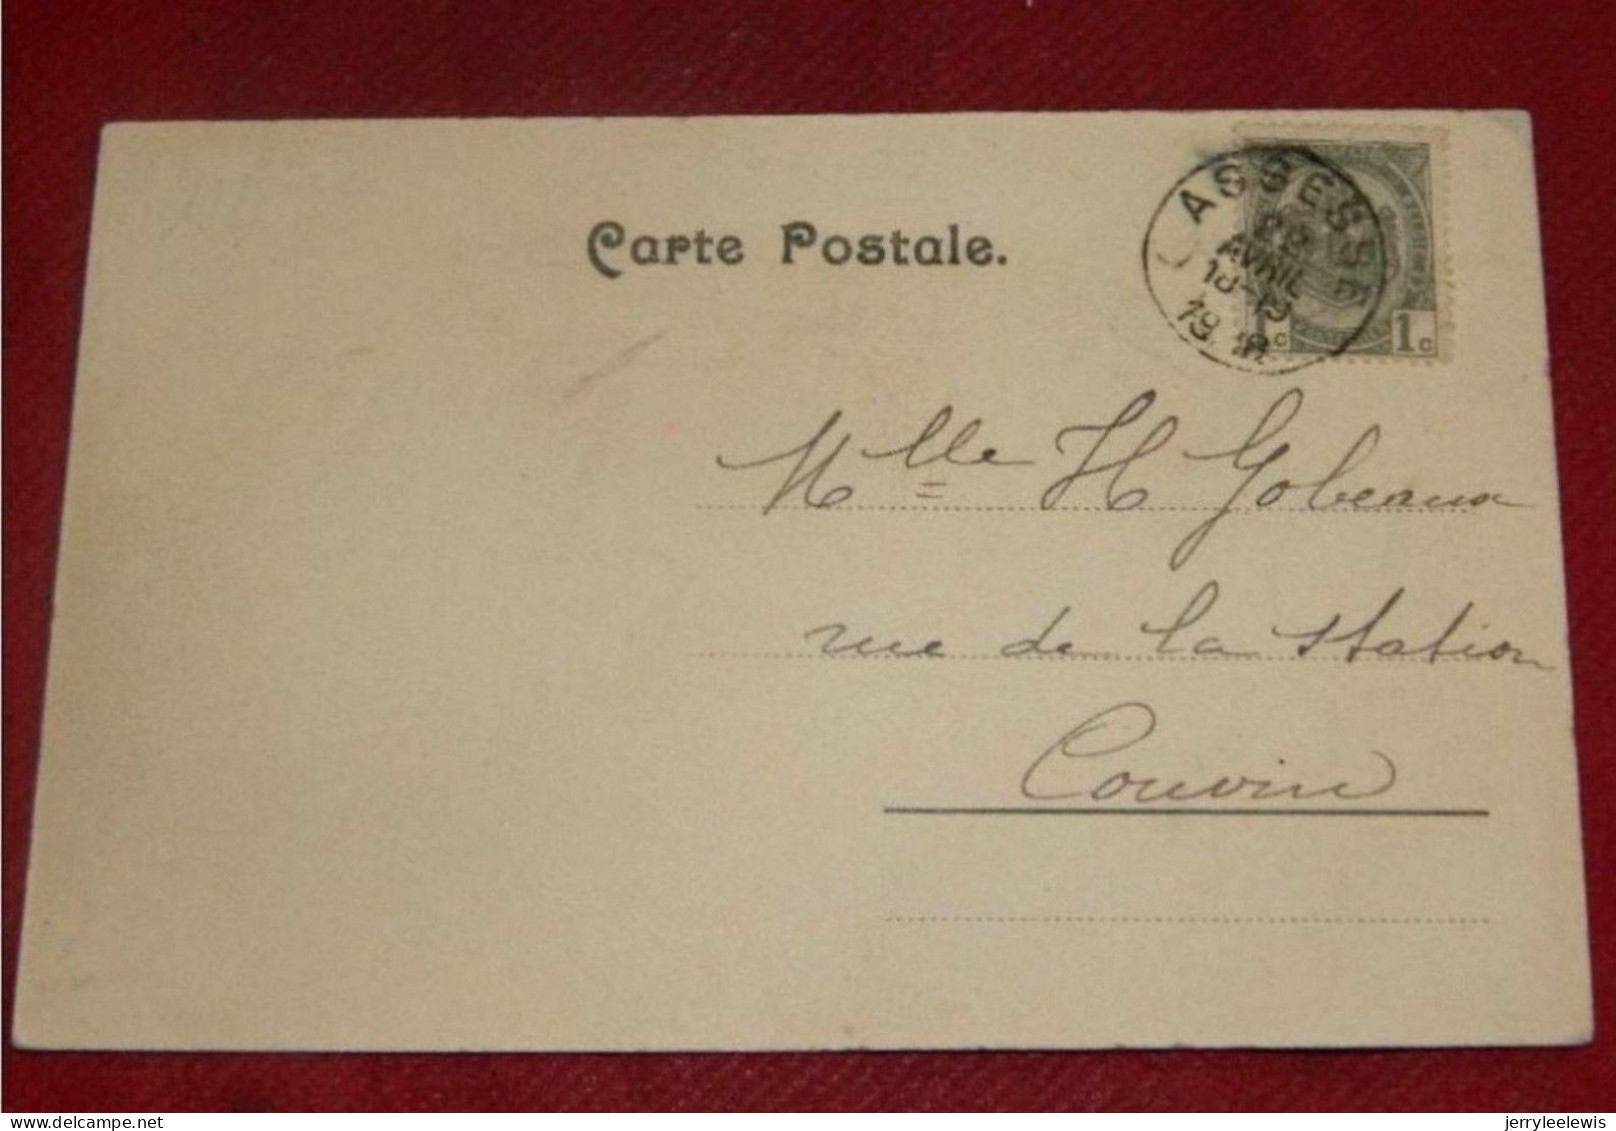 Carte Postale.
ASSESSE
AVRIL
18-19
19
1c
Mlle H Gobeaux
rue de la Station
Couvin
delcampe.net
jerryleelewis